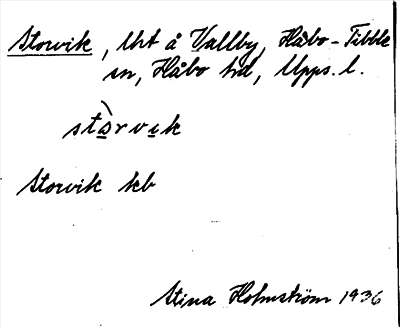 Storvik, Urt å Vallby, Håbo-Tibble
sn, Håbo hd, Upps. l.
stòrvik
Storvik kb
Stina Holmström 1936